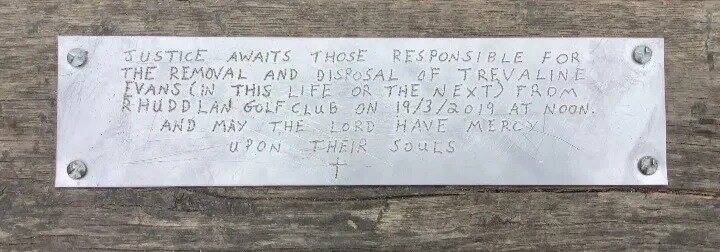 JUSTICE AWAITS THOSE RESPONSIBLE FOR
THE REMOVAL AND DISPOSAL OF TREVALINE
EVANS (IN THIS LIFE OR THE NEXT) FROM
RHUDDLAN GOLF CLUB ON 19/3/2019 AT NOON.
AND MAY THE LORD HAVE MERCY
UPON THEIR SOULS
†